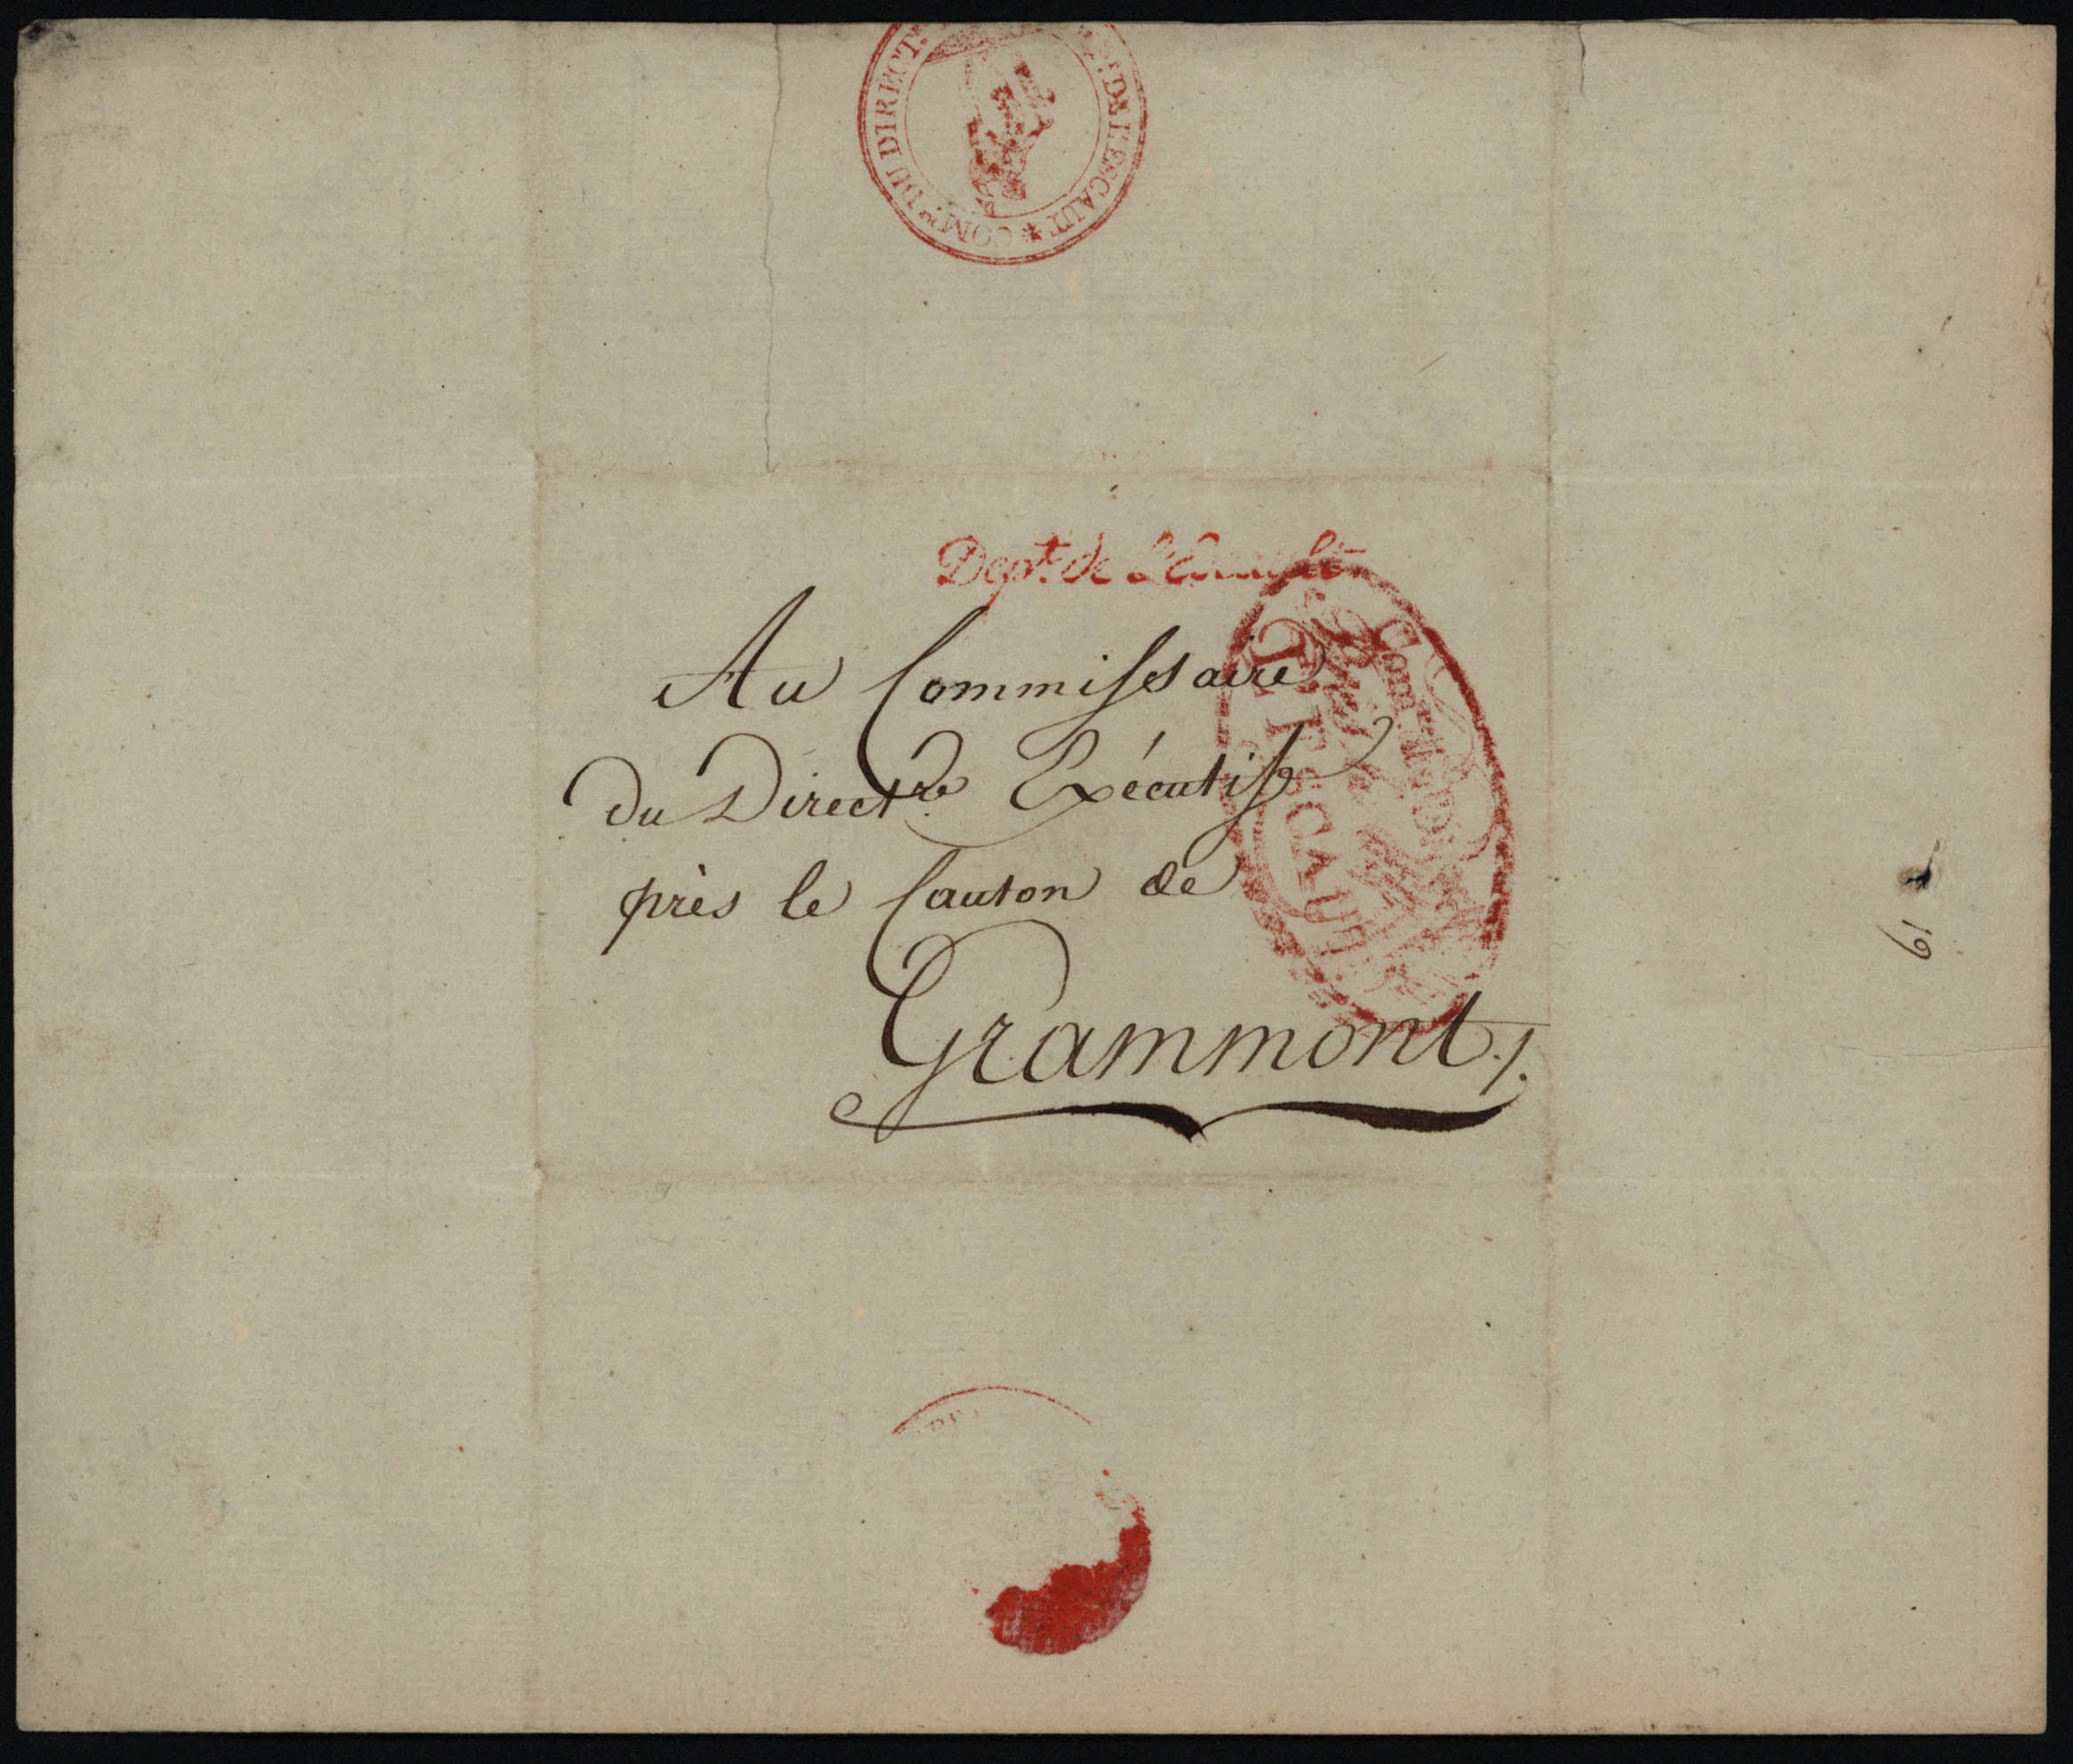 COM.re DU DIRECT. DE L'ESCAUT *
Dept. de L'Escaut
Au Commissaire
Du Direct.re Exécutif
près le Canton de
Grammont ./.
L'ESCAUT
19